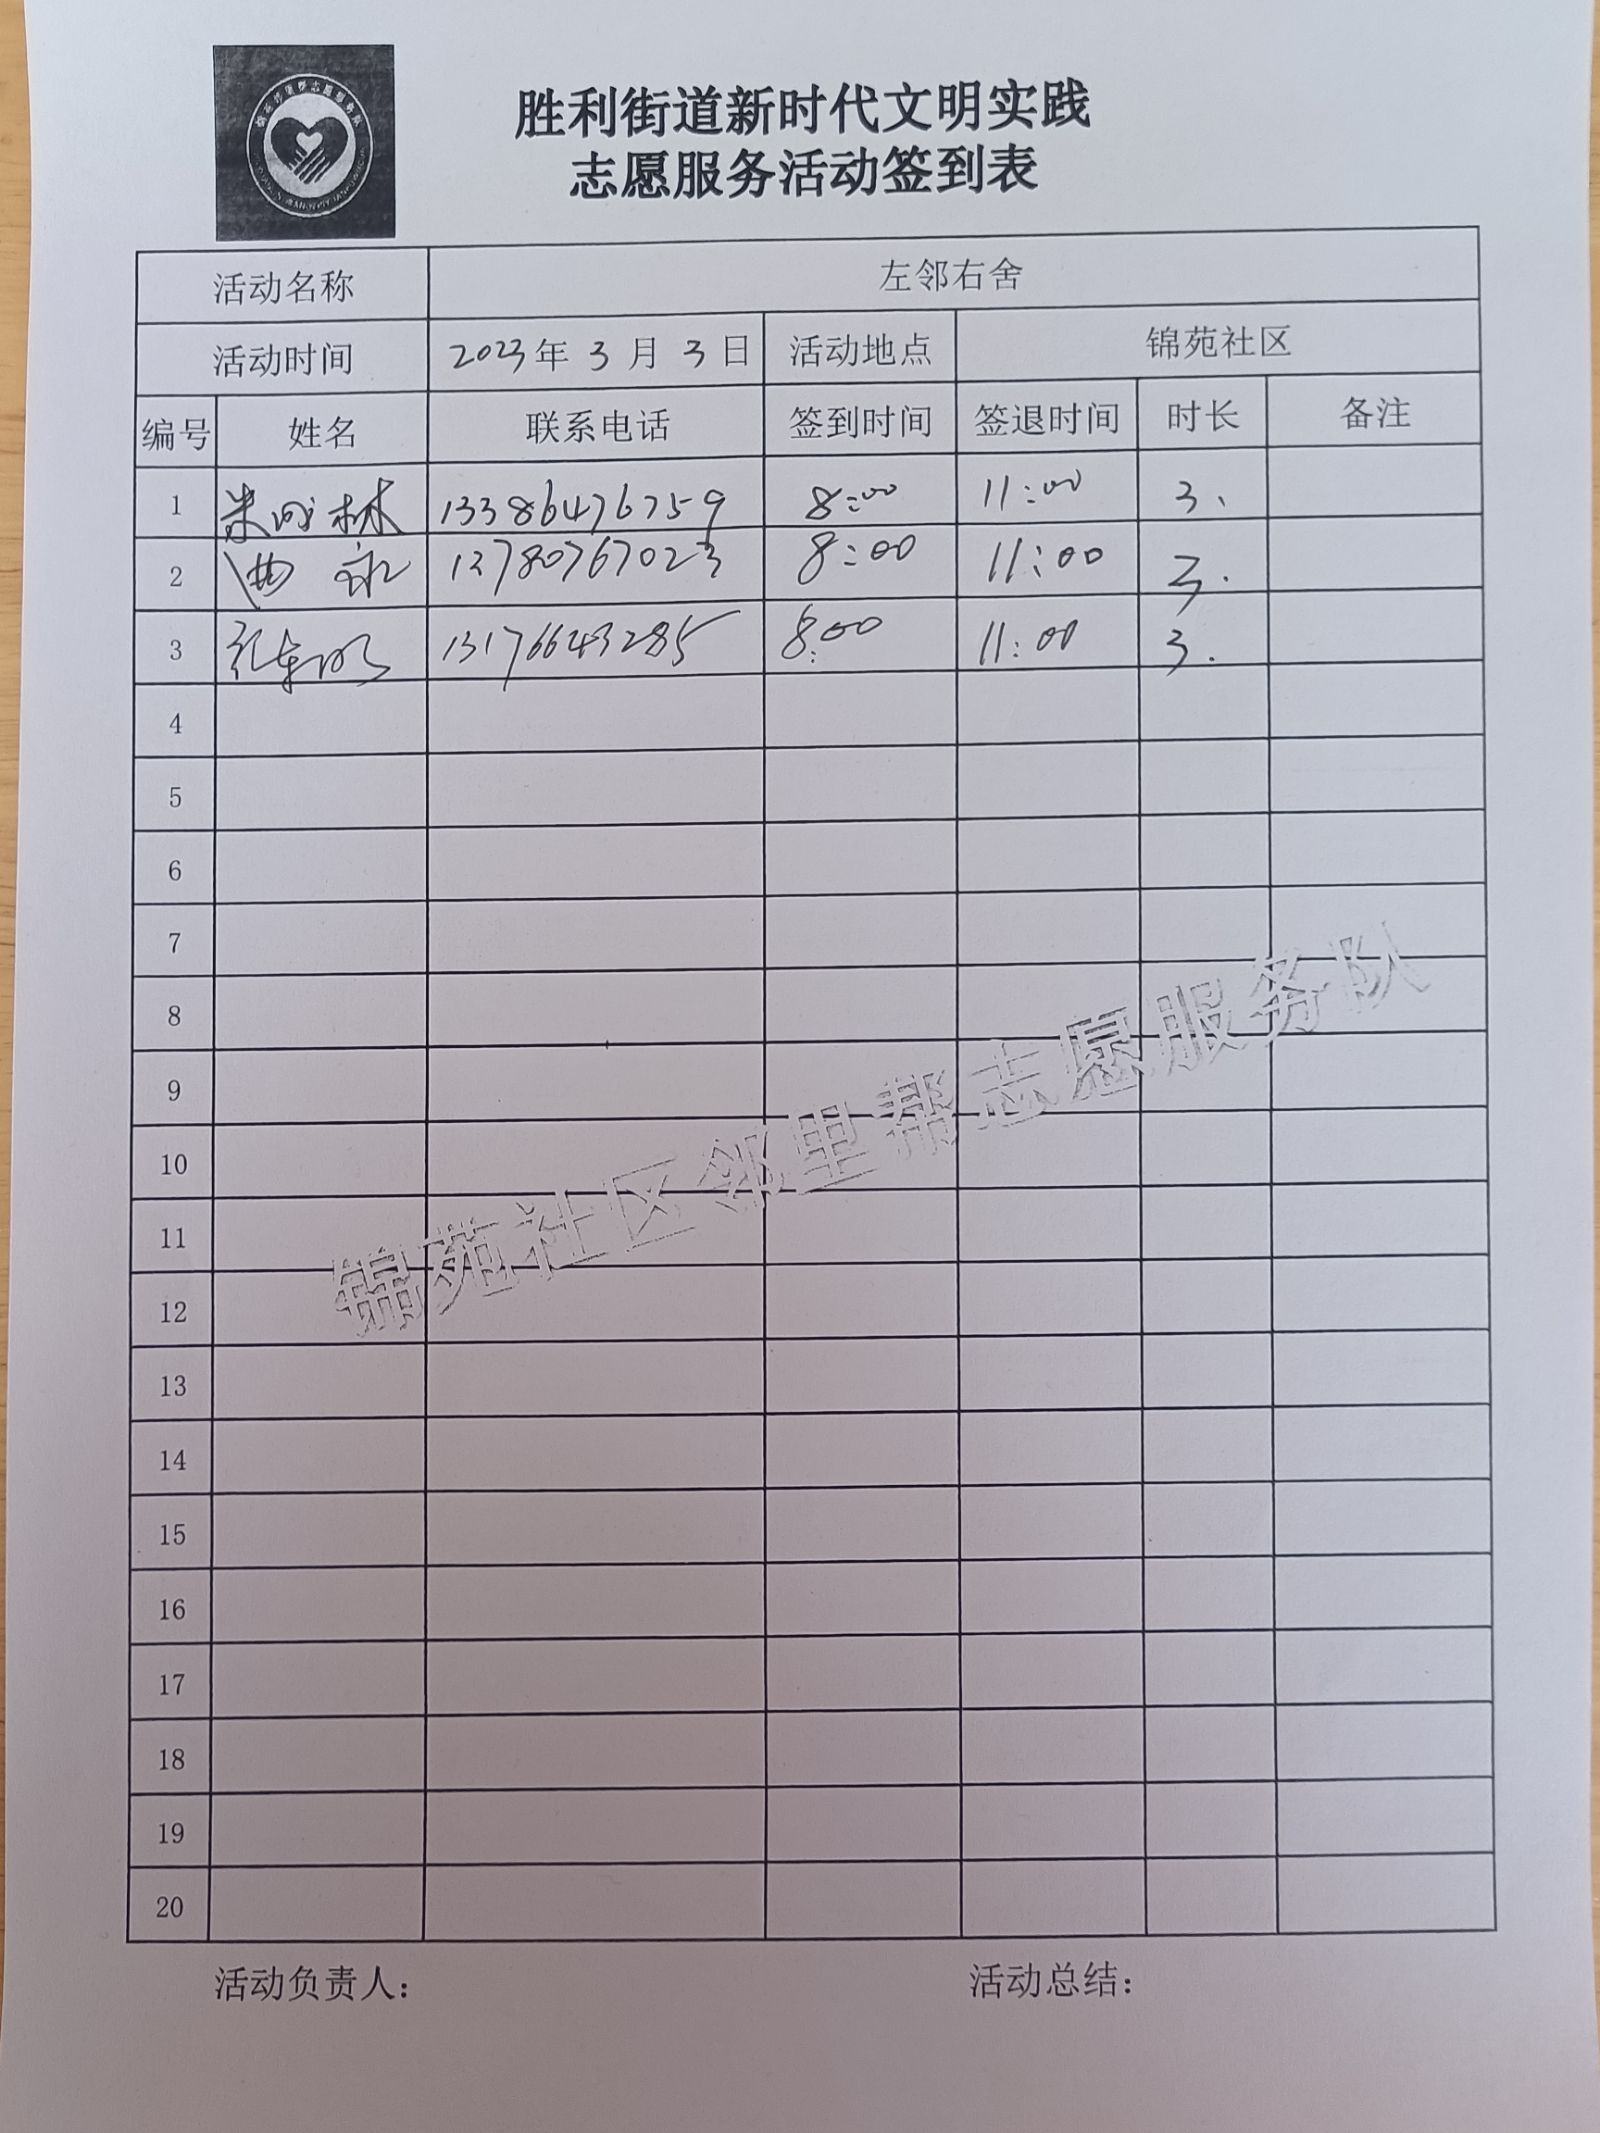 胜利街道新时代文明实践
志愿服务活动签到表
活动名称 左邻右舍
活动时间 2023年 3 月 3 日 活动地点 锦苑社区
编号 姓名 联系电话 签到时间 签退时间 时长 备注
1 林 13386476759 8:00 11:00 3.
2 曲 13780767023 8:00 11:00 3.
3 13176643285 8:00 11:00 3.
4
5
6
7
8
9
10
11
12
13
14
15
16
17
18
19
20
锦苑社区邻里帮志愿服务队
活动负责人: 活动总结: